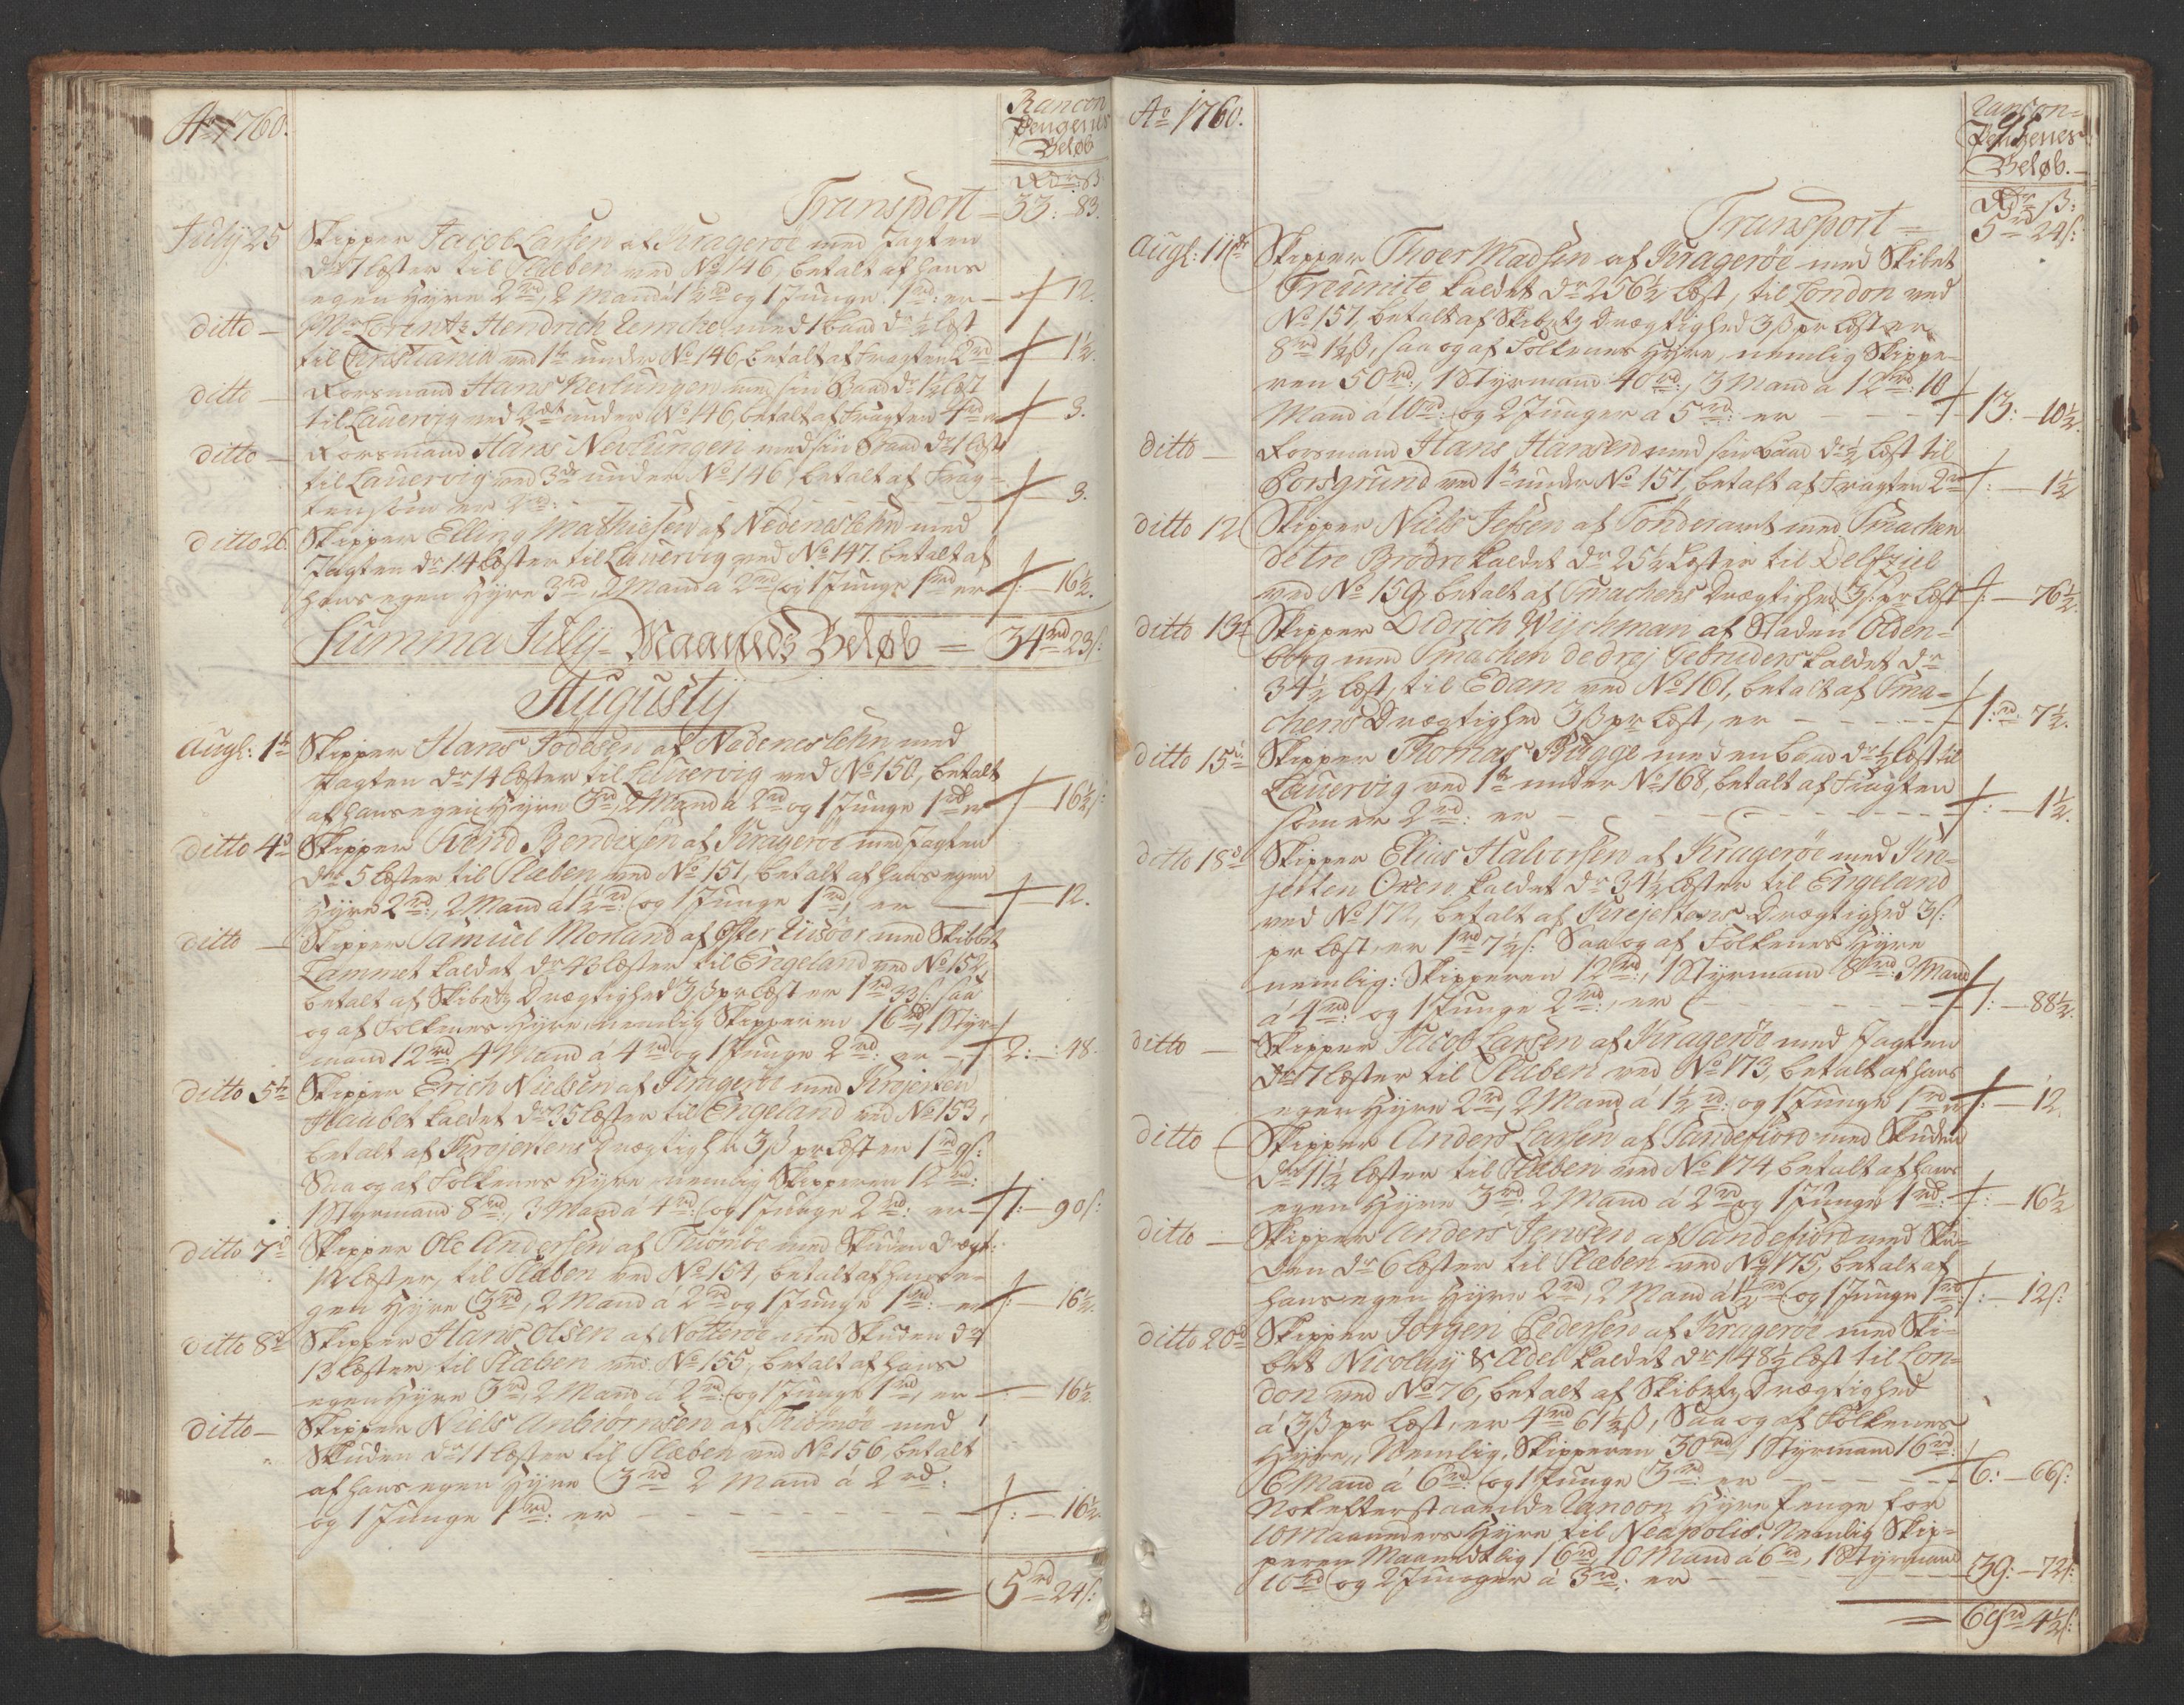 Ao 1760.
Rancon
Pengenes
Beløb
Rdr: ß
Transport = 33: 83.
July 25 Skipper Jacob Larsen af Krageröe med Jagten
dr 7 læster til Slæben ved No 146, betalt af hans
egen Hyre 2rd, 2 Mand á 1½rd og 1 Junge 1rd: er — 12.
ditto — Mr Lorentz Hendrich med 1 baad dr ½ læst
til Christiania ved 1te under No 146, betalt af fragten 2rd — 1½.
ditto — Rorsmand Hans Nevlungen med sin Baad dr 1½ læst
til Lauervig ved 2det under No 146, betalt af fragten 4rd er 3.
ditto — Rorsmand Hans Nevlungen med sin Baad dr 1 læst
til Lauervig ved 3de under No 146, betalt af Frag-
ten som er 2rd: — 3.
ditto 26 Skipper Elling Mathiesen af Nedeneslehn med
Jagten dr 14 læster til Lauervig ved No 147. betalt af
hans egen Hyre 3rd, 2 Mand a 2rd og 1 Junge 1rd er — 16½.
Summa July Maaneds Beløb = 34rd 23ß
Augustij
Augs: 1te Skipper Hans Todesen af Nedeneslehn med
Jagten dr 14 læster til Lauervig ved No 150, betalt
af hans egen Hyre 3rd, 2 Mand à 2rd og 1 Junge 1rd er — 16½ß:
ditto 4de Skipper Svend Bendixen af Krageröe med Jagten
dr 5 læster til Slæben ved No 151, betalt af hans egen
Hyre 2rd:, 2 Mand á 1½rd: og 1 Junge 1rd, er — 12.
ditto — Skipper Samuel Morland af Øster Riisöer med Skibet
Lammet kaldet dr 43 læster til Engeland ved No 152
betalt af Skibets Drægtighed 3ß pr læst er 1rd 33ß: saa
og af Folkenes Hyre, nemlig Skipperen 16rd, 1 Styr-
mand 12rd, 4 Mand á 4rd og 1 Junge 2rd: er — 2: — 48.
ditto 5te Skipper Erich Nielsen af Krageröe med Krejerten
Haabet kaldet dr 35 læster til Engeland ved No 153,
betalt af Krejertens Drægtighd 3ß pr læst er 1rd 9ß:
Saa og af Folkenes Hyre nemlig Skipperen 12rd:
1 Styrmand 8rd:, 3 Mand á 4rd: og 1 Junge 2rd: er — 1: — 90ß:
ditto 7de Skipper Ole Andersen af Tiømöe med Skuden drægt:
12 læster, til Slæben ved No 154, betalt af hans e-
gen Hyre 3rd, 2 Mand á 2rd og 1 Junge 1rd: er : — 16½.
ditto 8de Skipper Hans Olsen af Nötteröe med Skuden dr
13 læster til Slæben ved No 155, betalt af hans
egen Hyre 3rd, 2 Mand á 2rd: og 1 Junge 1rd, er — 16½.
ditto — Skipper Niels Anbiörnsen af Tiömöe med
Skuden dr 11 læster til Slæben ved No 156, betalt
af hans egen Hyre 3rd 2 Mand á 2rd:
og 1 Junge 1rd: er — : — 16½
= 5rd 24ß:
Ao 1760.
Rancon=
Pengenes
Beløb.
Rdr ß:
Transport = 5rd 24ß:
Augs: 11te Skipper Thoer Madsen af Krageröe med Skibet
Treunite kaldet dr 256½ læst, til London ved
No 157, betalt af Skibets Drægtighed 3ß pr læst er
8rd 1½ß, saa og af Folkenes Hyre, nemlig Skippe-
ren 50rd:, 1 Styrmand 40rd:, 3 Mand a 12rd: 10
Mand á 10rd: og 2 Junger a 5rd: er — 13: — 10½.
ditto — Rorsmand Hans Hansen med sin baad dr ½ læst til
Porsgrund ved 1te under No 157, betalt af Fragten 2rd : — 1½
ditto 12 Skipper Niels Jessen af Tönderamt med Smachen
de tre Brødre kaldet dr 25½ læster til Delfziel
ved No 159, betalt af Smachens Drægtighed 3ß: pr læst : — 76½.
ditto 13de Skipper Oldrich Wijchman af Staden Olden-
borg med Smachen de drej Gebruders kaldet dr
34½ læst, til Edam ved No 161, betalt af Sma-
chens Drægtighed 3ß pr læst, er — 1:rd: 7½.
ditto 15te Skipper Thomas Bugge med en baad dr ½ læst til
Lauervig ved 1te under No 168, betalt af Fragten
som er 2rd: er — : — 1½.
ditto 18de Skipper Elias Halvorsen af Krageröe med Kre-
jerten Oxen kaldet dr 34½ læster til Engeland
ved No 172, betalt af Krejertens Drægtighed 3ß:
pr læst, er 1rd 7½ß: Saa og af Folkenes Hyre
nemlig: Skipperen 12rd:, 1 Styrmand 8rd: 3 Mand
á 4rd: og 1 Junge 2rd:, er — 1: — 88½.
ditto — Skipper Jacob Larsen af Krageröe med Jagten
dr 7 læster til Slæben ved No 173, betalt af hans
egen Hyre 2rd, 2 Mand á 1½rd: og 1 Junge 1rd er : — 12.
ditto — Skipper Anders Larsen af Sandefiord med Skuden
dr 11½ læster til Slæben ved No 174 betalt af hans
egen Hyre 3rd: 2 Mand á 2rd og 1 Junge 1rd: : — 16½
ditto — Skipper Anders Jensen af Sandefiord med Sku-
den dr 6 læster til Slæben ved No 175, betalt af
hans egen Hyre 2rd, 2 Mand á 1½rd og 1 Junge 1rd : — 12ß:
ditto 20de Skipper Jörgen Pedersen af Krageröe med Ski-
bet Nicolay & Ædel kaldet dr 148½ læst til Lon-
don ved No 76, betalt af Skibets Drægtighed
á 3ß pr læst, er 4rd 61½ß, Saa og af Folkenes
Hyre, Nemlig, Skipperen 30rd, 1 Styrmand 16rd:
6 Mand á 6rd: og 1 Junge 3rd: er — 6: — 66ß:
Nok efterstaaende Rancon Hyre Penge for
10 Maaneders Hyre til Neapolis: Nemlig Skip-
peren Maanedtlig 16rd, 10 Mand á 6rd, 1 Styrmand
10rd og 2 Junger á 3rd: er — 39: — 72ß:
= 69rd 4½ß: